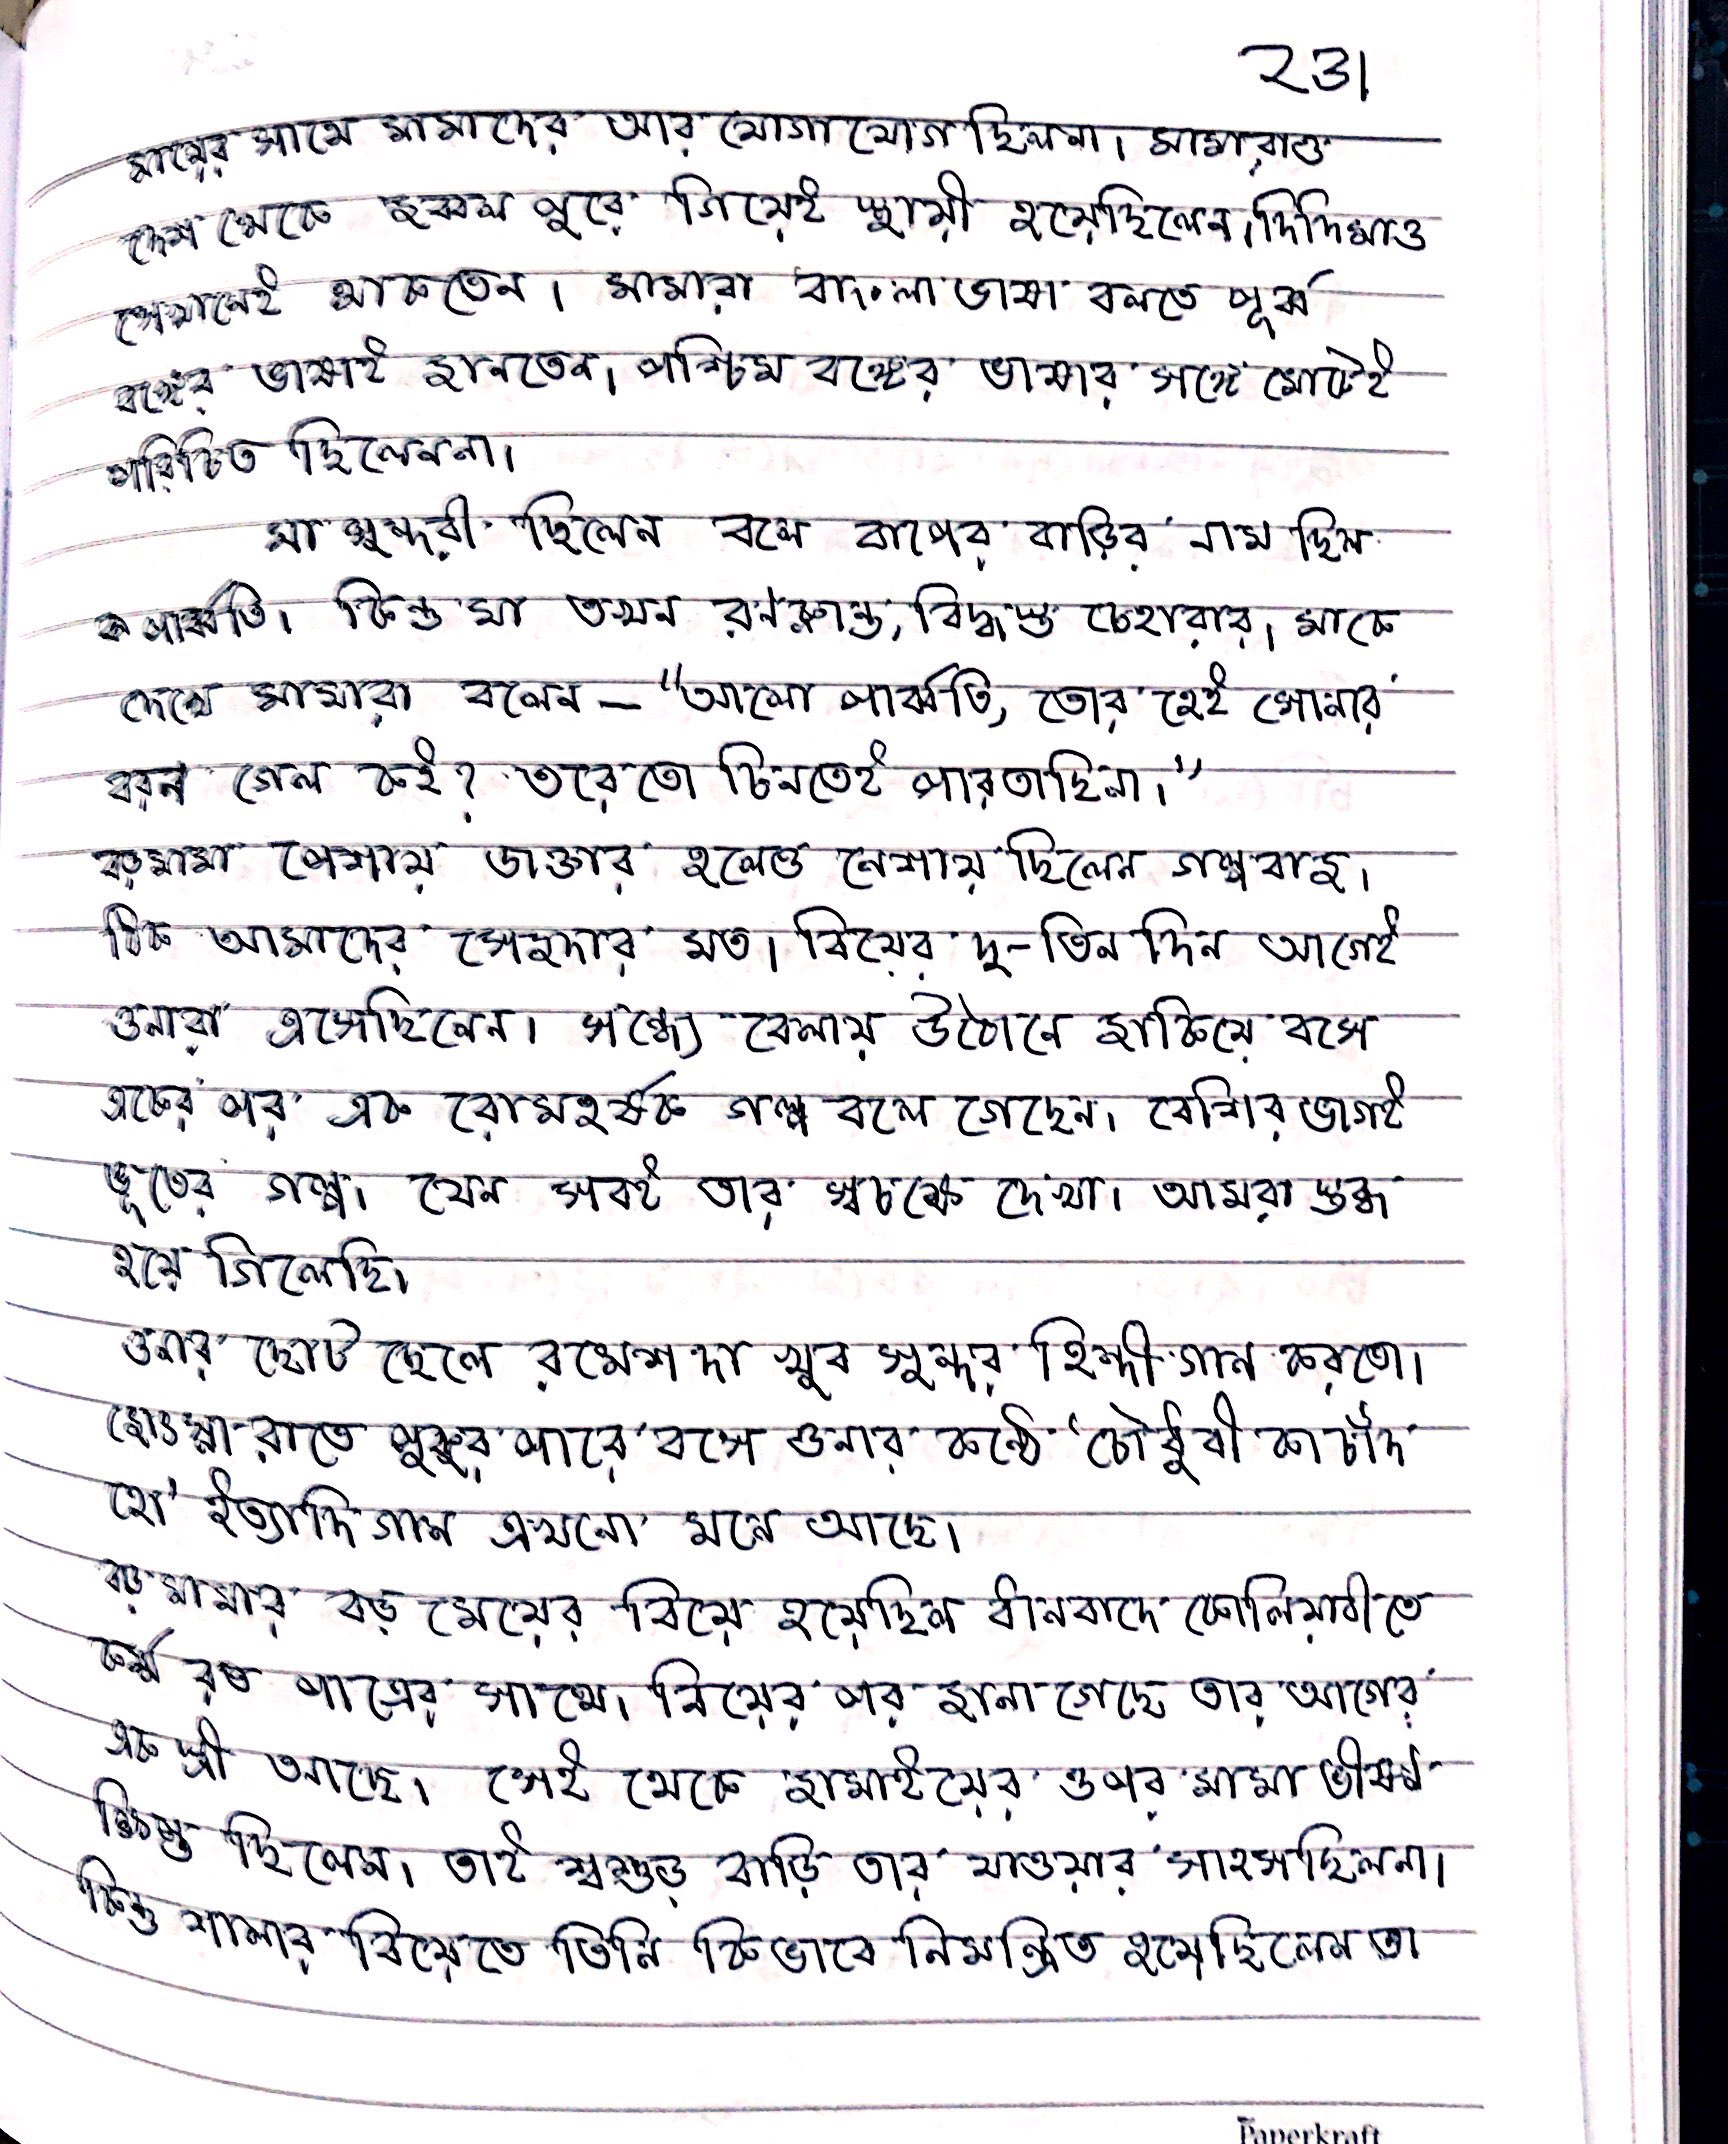 ২৩।
মায়ের সাথে মামাদের আর যোগাযোগ ছিলনা। মামারাও
দেশ থেকে জব্বলপুরে গিয়েই স্থায়ী হয়েছিলেন। দিদিমাও
সেখানেই থাকতেন। মামারা বাংলা ভাষা বলতে পূর্ব্ব
বঙ্গের ভাষাই জানতেন। পশ্চিম বঙ্গের ভাষার সঙ্গে মোটেই
পরিচিত ছিলেননা।
মা সুন্দরী ছিলেন বলে বাপের বাড়ির নাম ছিল
পার্ব্বতি। কিন্তু মা তখন রণক্লান্ত, বিদ্ধস্ত চেহারার। মাকে
দেখে মামারা বলেন — "আলো পার্ব্বতি, তোর হেই সোনার
বরন গেল কই? তরে তো চিনতেই পারতাছিনা।"
বড়মামা পেশায় ডাক্তার হলেও নেশায় ছিলেন গল্পবাজ।
ঠিক আমাদের সেজদার মত। বিয়ের দু-তিন দিন আগেই
ওনারা এসেছিলেন। সন্ধ্যে বেলায় উঠোনে জাকিয়ে বসে
একের পর এক রোমহর্ষক গল্প বলে গেছেন। বেশির ভাগই
ভূতের গল্প। যেন সবই তার স্বচক্ষে দেখা। আমরা স্তব্ধ
হয়ে গিলেছি।
ওনার ছোট ছেলে রমেশদা খুব সুন্দর হিন্দী গান করতো।
জোৎস্না রাতে পুকুর পারে বসে ওনার কন্ঠে 'চৌধুবী কা চাঁদ
হো' ইত্যাদি গান এখনো মনে আছে।
বড় মামার বড় মেয়ের বিয়ে হয়েছিল ধানবাদে কোলিয়ারীতে
কর্ম্ম রত পাত্রের সাথে। বিয়ের পর জানা গেছে তার আগের
এক স্ত্রী আছে। সেই থেকে জামাইয়ের ওপর মামা ভীষণ
ক্ষিপ্ত ছিলেন। তাই শ্বশুড় বাড়ি তার যাওয়ার সাহস ছিলনা।
কিন্তু শালার বিয়েতে তিনি কিভাবে নিমন্ত্রিত হয়েছিলেন তা
Paperkraft